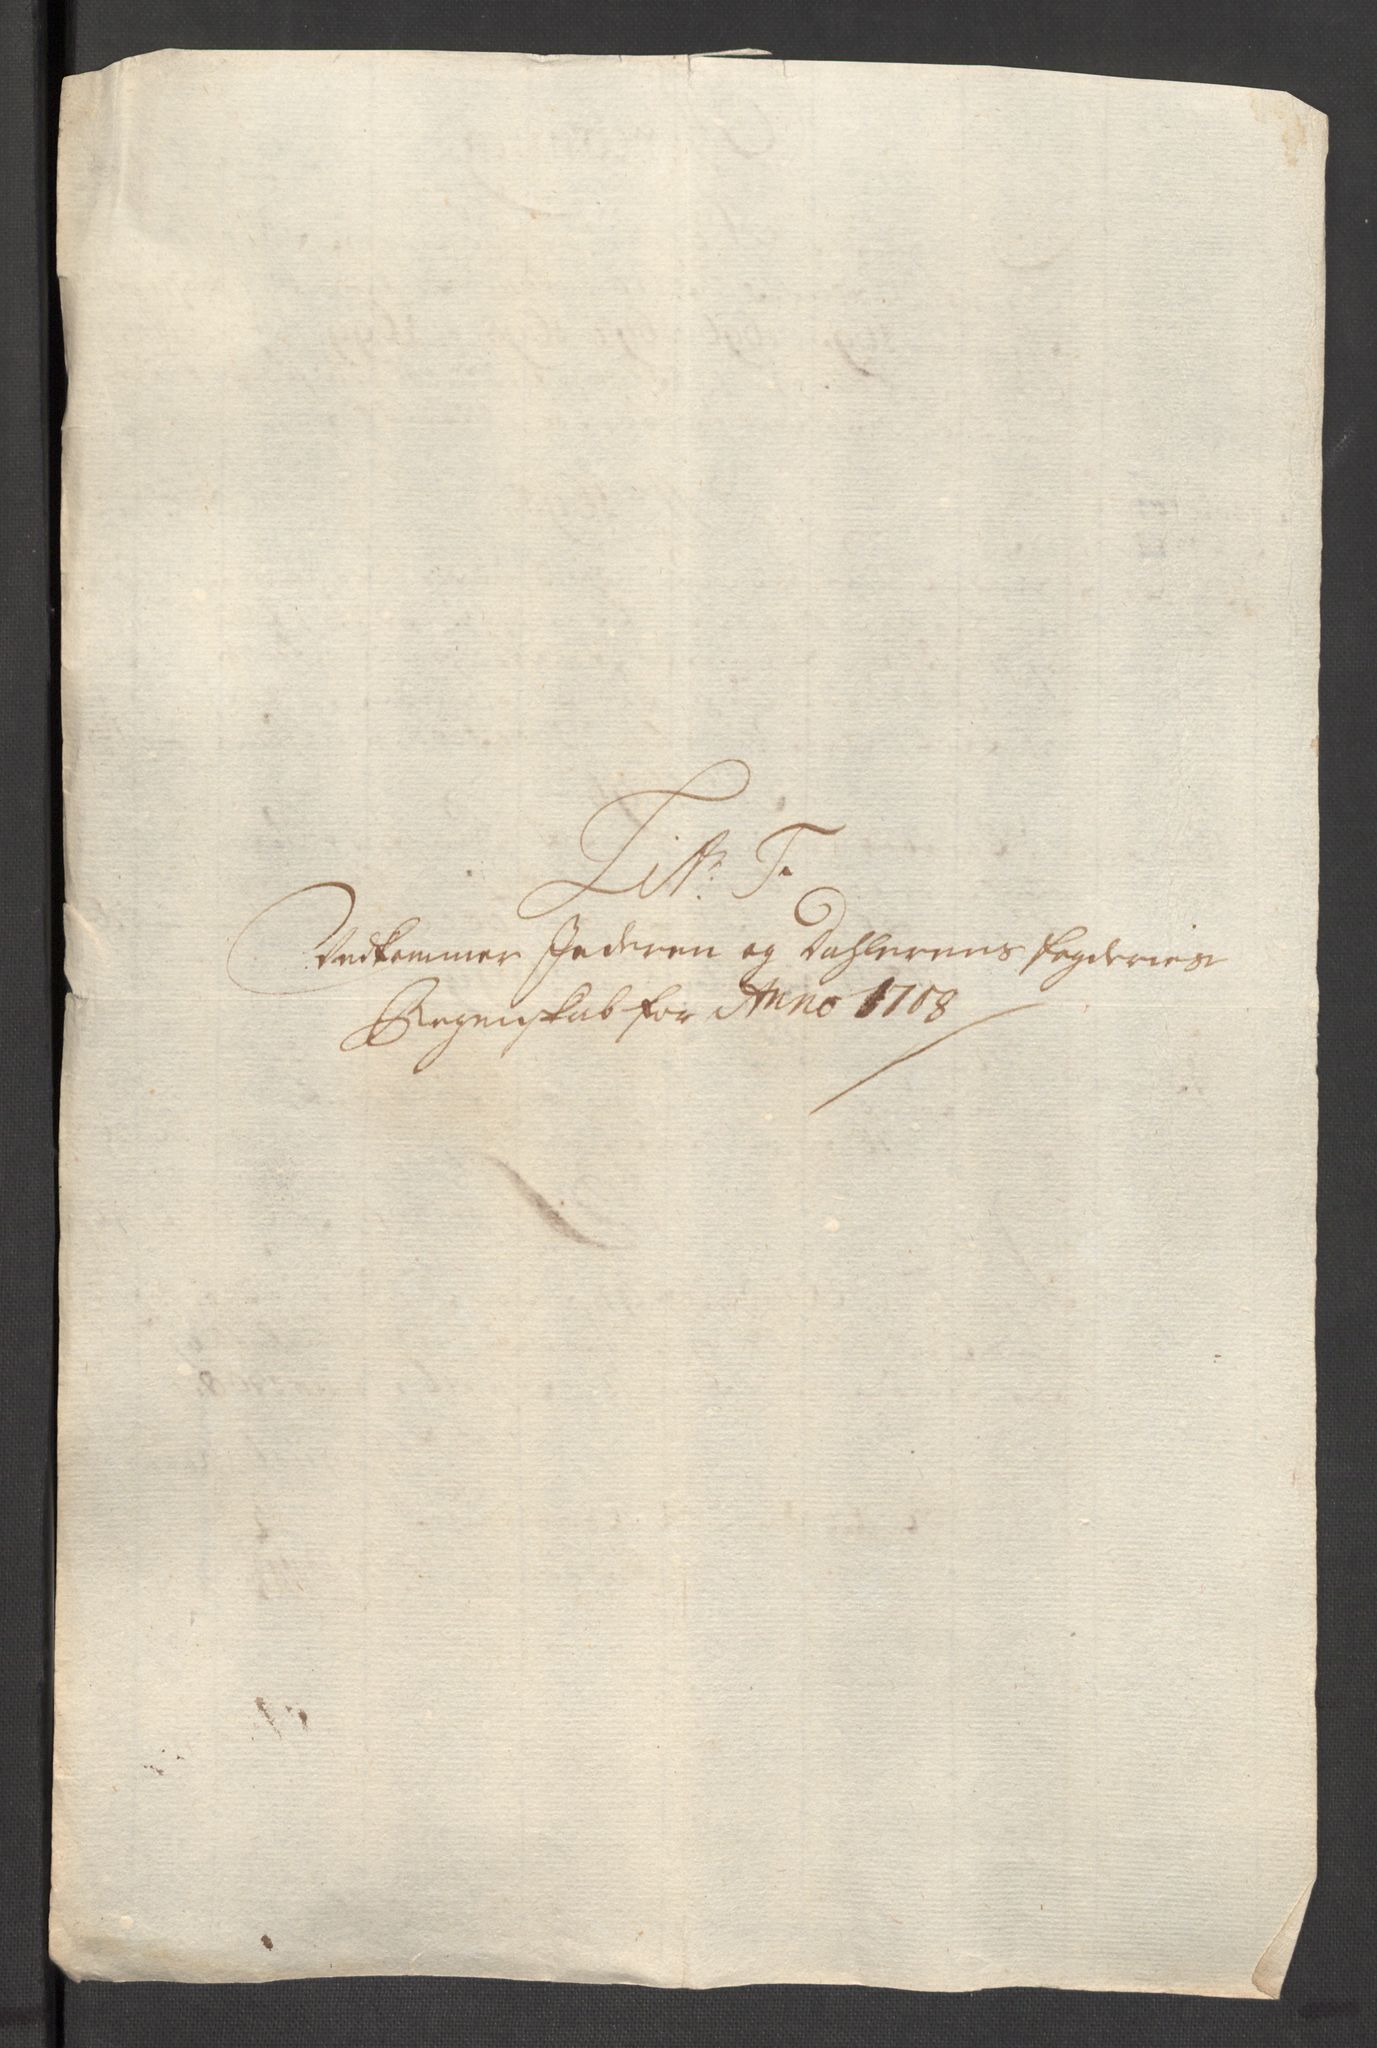 Litr. F.
Vedkommer Jæderen og Dahlernes fogderies
Regenskab for Anno 1708